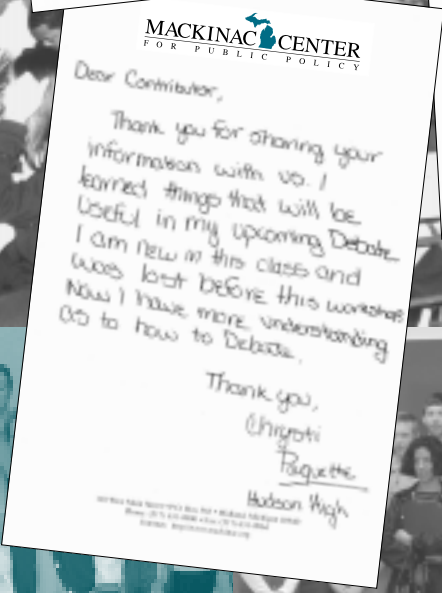 MACKINAC CENTER
FOR PUBLIC POLICY
Dear Contributor,
Thank you for sharing your
information with us. I
learned things that will be
useful in my upcoming Debate.
I am new in this class and
was lost before this workshop.
Now I have more understanding
as to how to Debate.
Thank you,
Paquette
Hudson High